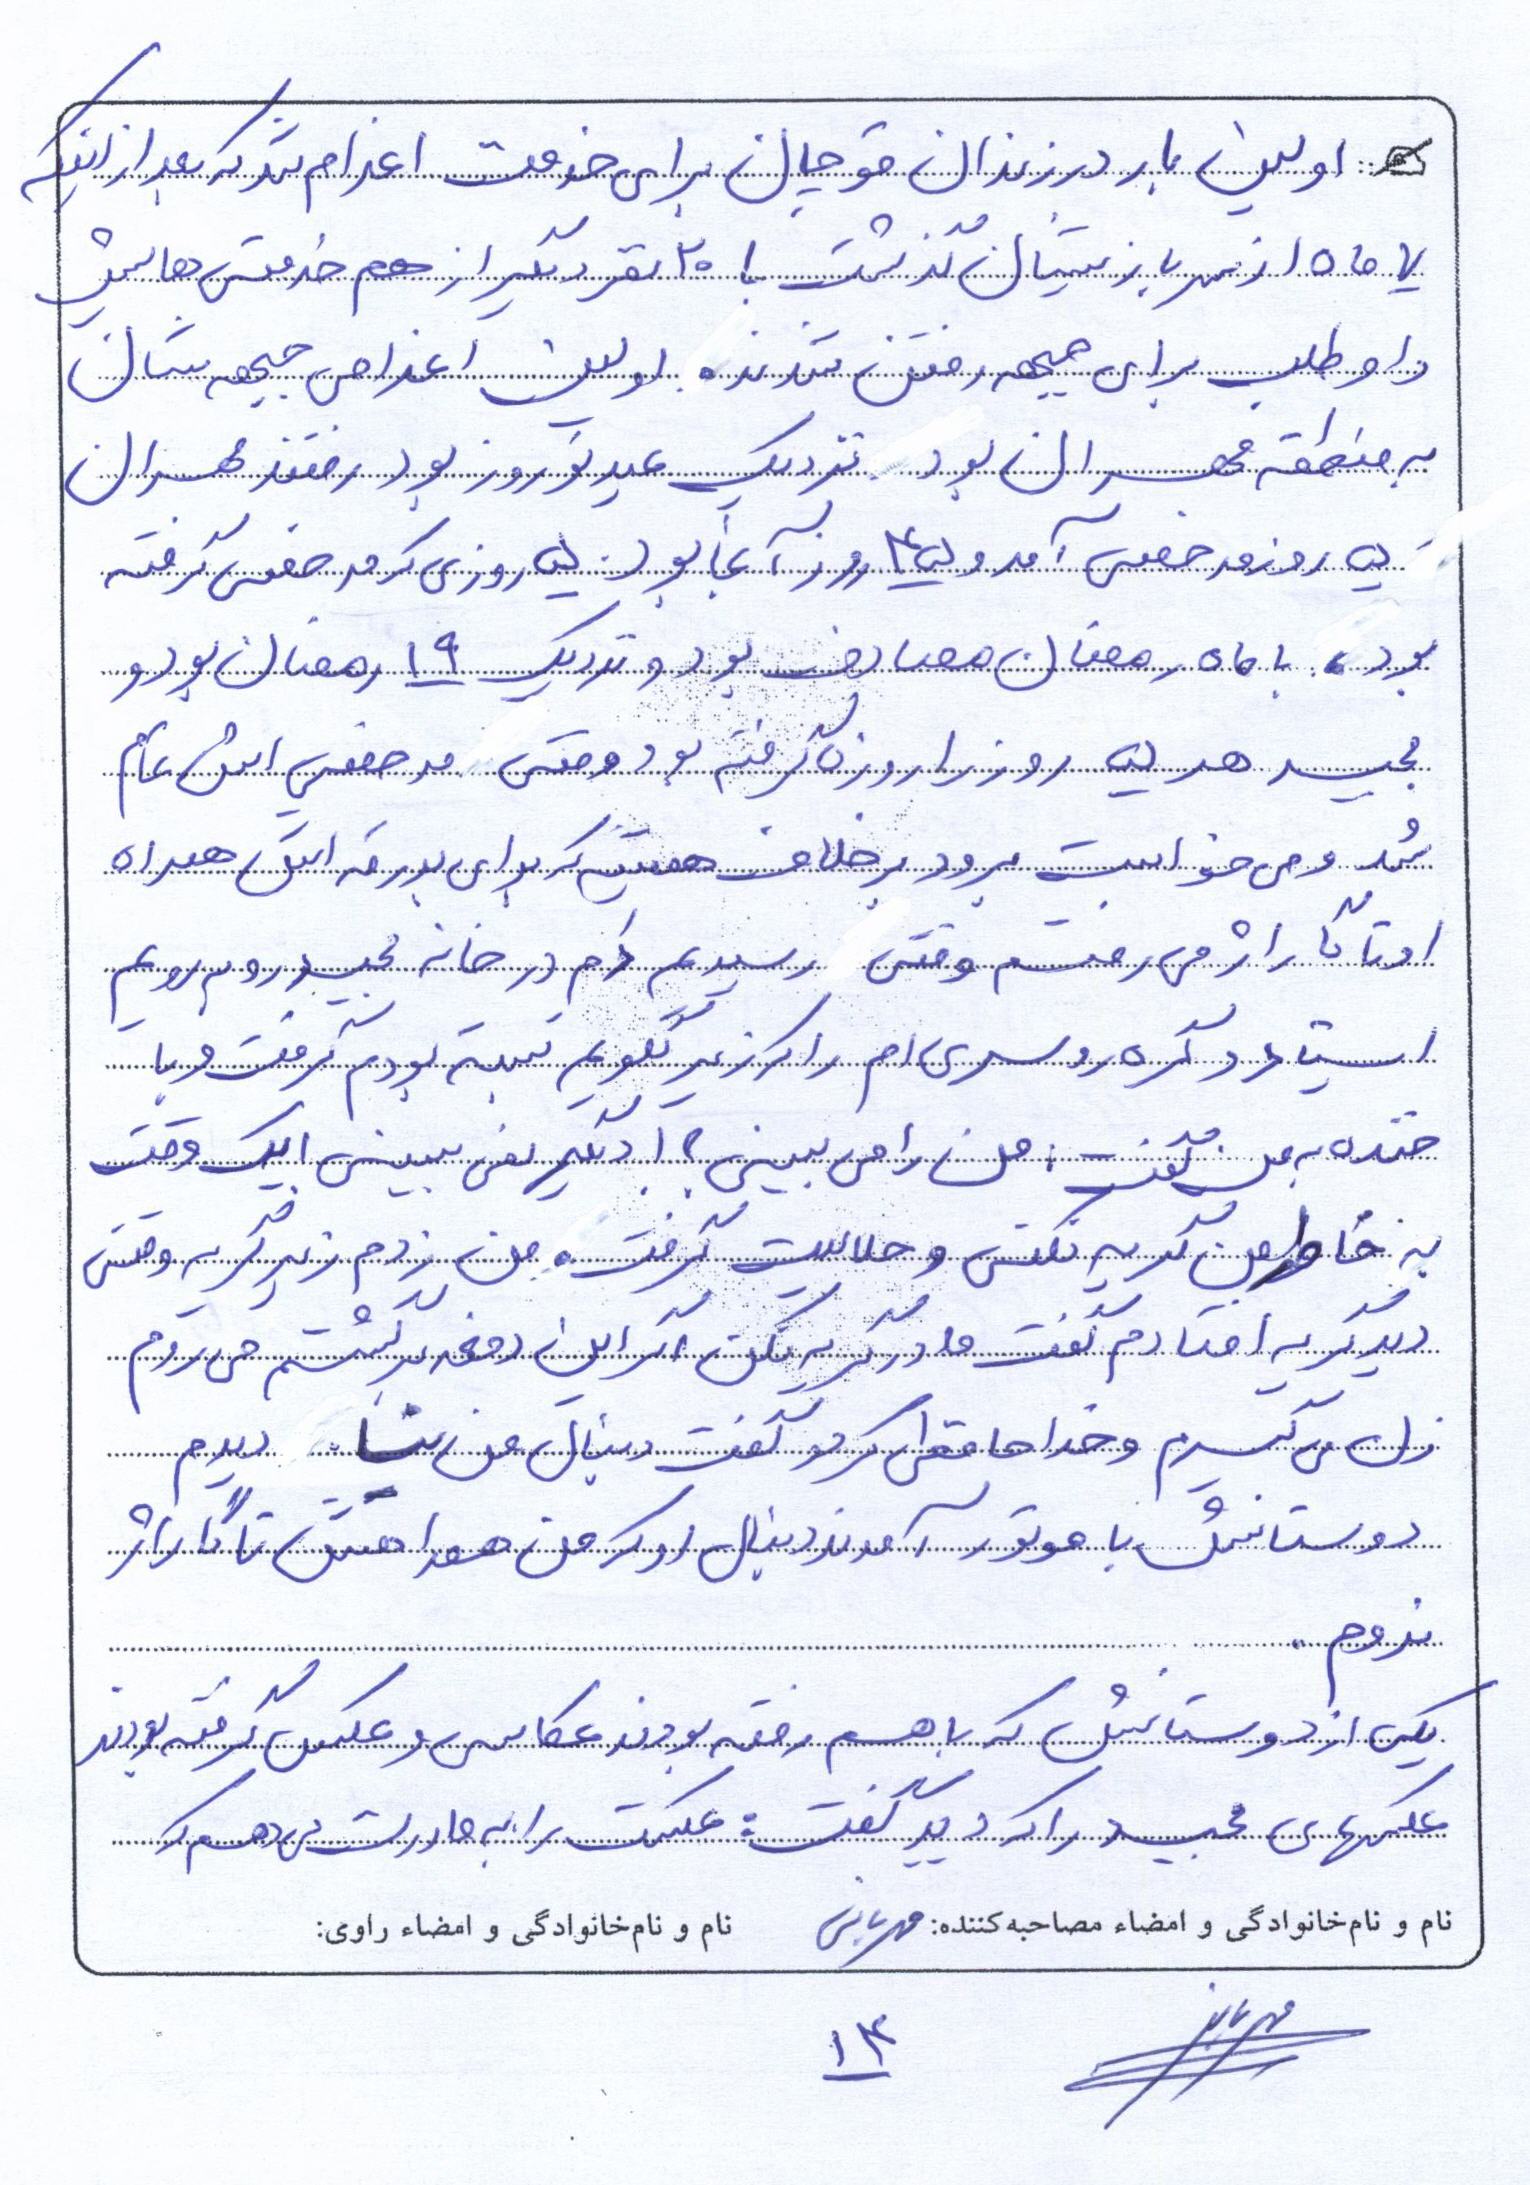 اولین بار در زندان قوچان برای خدمت اعزام شد که بعد از اینکه
۷ ماه از سربازیشان گذشت با ۲۰ نفر دیگر از هم خدمتی هایش
داوطلب برای جبهه رفتن شدند. اولین اعزامی جبهه شان
به منطقه مهران بود نزدیک عید نوروز بود رفتند مهران
روز مرخصی آمد و روز آنجا بود. روزی که مرخصی گرفته
بود، با ماه رمضان مصادف بود و نزدیک ۱۹ رمضان بود و
مجید هر روز را روزه گرفته بود وقتی مرخصی اش تمام
شد و می خواست برود برخلاف همیشه که برای بدرقه اش همراه
او تا گاراژ می رفتم وقتی رسیدیم دم در خانه مجید روبرویم
ایستاد و گره روسری ام را که زیر گلویم بسته بودم گرفت و با
خنده به من گفت: من را می بینی؟! دیگر نمی بینی ایک وقت
به خاطر من گریه نکنی و حلالیت گرفت. من زدم زیر گریه وقتی
دید گریه افتادم گفت مادر گریه نکن اگر این دفعه برگشتم می روم
زن می گیرم و خداحافظی کرد و گفت دنبال من نیا. دیدم
دوستانش با موتور آمدند دنبال او که من همراهش تا گاراژ
نروم.
یکی از دوستانش که با هم رفته بودند عکاسی و عکس گرفته بودند
عکسهای مجید را که دید گفت: عکست را به مادرت می دهم که
نام و نام‌خانوادگی و امضاء مصاحبه‌کننده: نام و نام‌خانوادگی و امضاء راوی:
۱۴